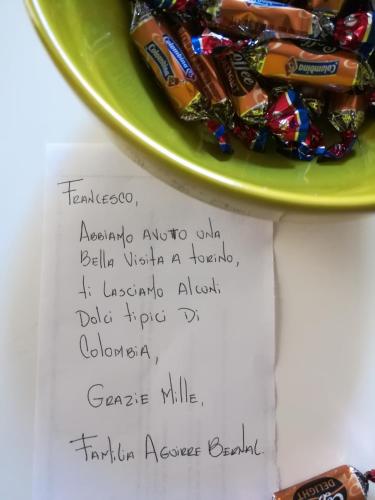 Coffee
Colombina
Colombina
Francesco,
Abbiamo avuto una
bella visita a Torino,
ti lasciamo alcuni
dolci tipici di
Colombia,
Grazie mille,
Familia Aguirre Bernal.
DELIGHT